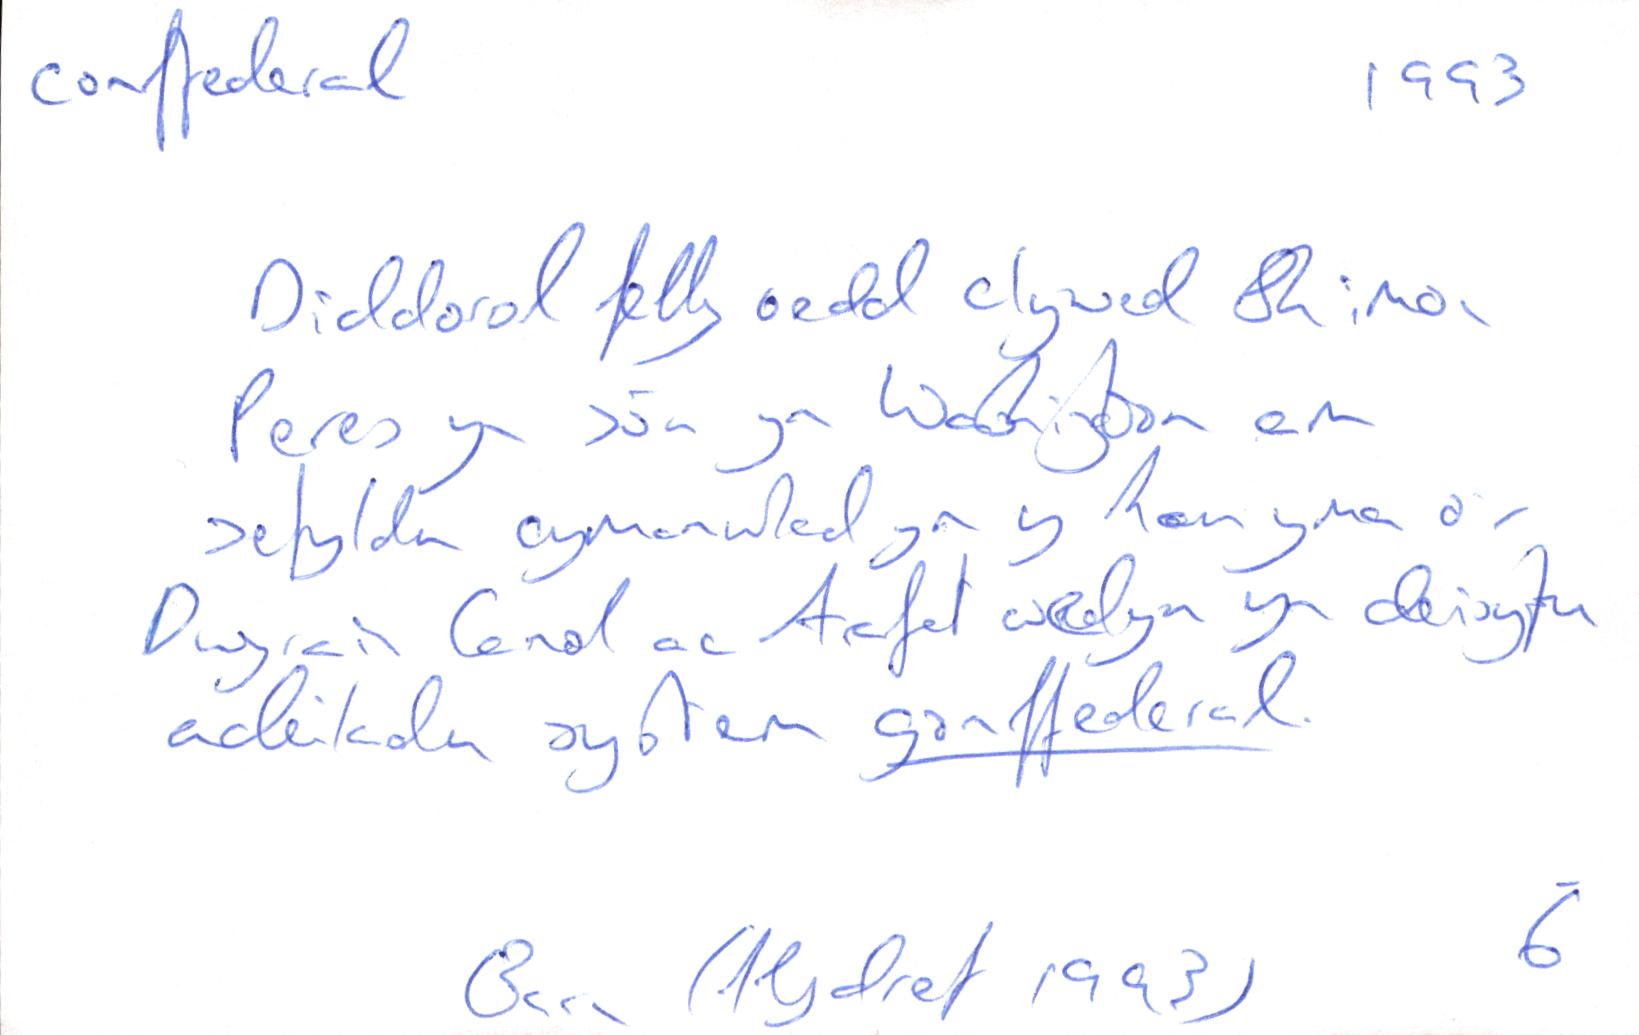 conffederal 1993
Diddorol felly oedd clywed Shimon
Peres yn sôn yn Washington am
sefydlu cymanwlad yn y han yma o'r
Dwyrain Canol ac Arafat wedyn yn deisyfu
adeiladu system gonffederal.
Barn (Hydref 1993) 6